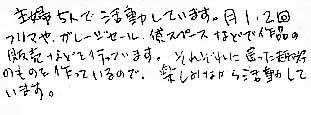 主婦5人で活動しています。月1、2回
フリマや、ガレージセール、貸スペースなどで作品の
販売などを行っています。それぞれに違った趣味
のものを作っているので、楽しみながら活動して
います。